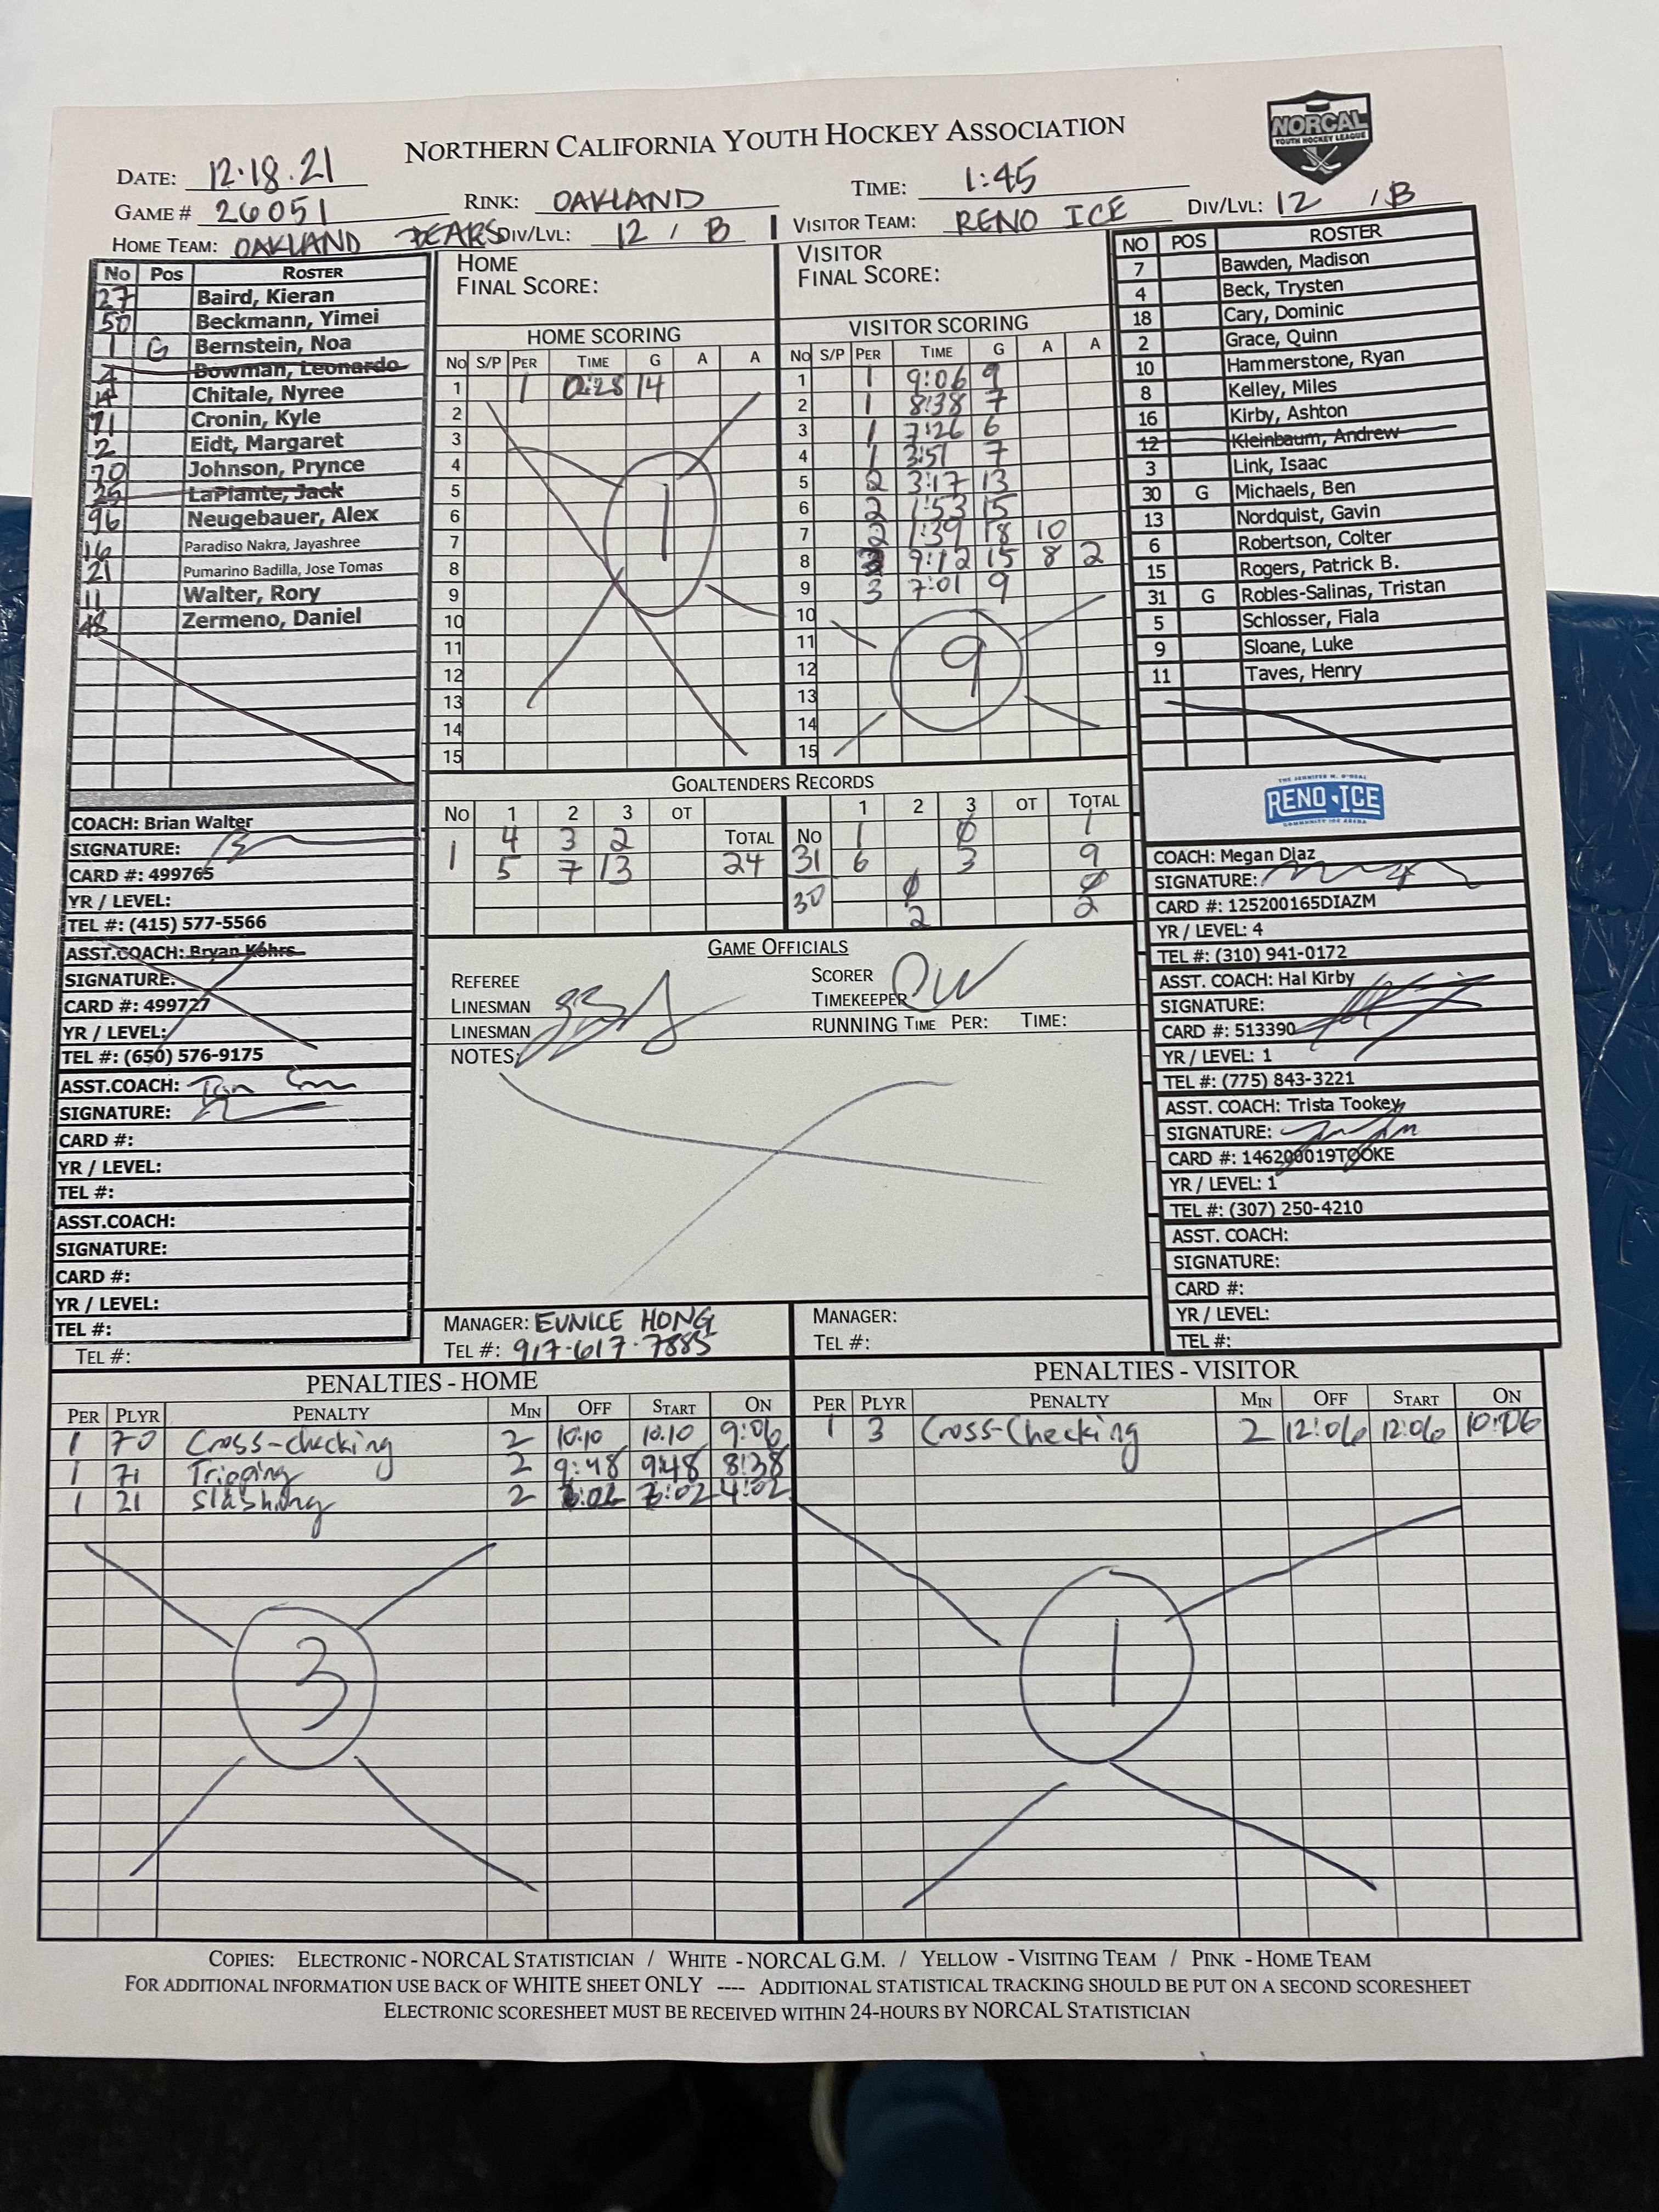 NORTHERN CALIFORNIA YOUTH HOCKEY ASSOCIATION
NORCAL
YOUTH HOCKEY LEAGUE
DATE: 12.18.21
RINK: OAKLAND
TIME: 1:45
GAME # 26051
HOME TEAM: OAKLAND BEARS DIV/LVL: 12 / B
VISITOR TEAM: RENO ICE DIV/LVL: 12 / B
No Pos ROSTER
27 Baird, Kieran
50 Beckmann, Yimei
1 G Bernstein, Noa
Bowman, Leonardo
Chitale, Nyree
71 Cronin, Kyle
2 Eidt, Margaret
70 Johnson, Prynce
25 LaPlante, Jack
96 Neugebauer, Alex
16 Paradiso Nakra, Jayashree
21 Pumarino Badilla, Jose Tomas
11 Walter, Rory
Zermeno, Daniel
COACH: Brian Walter
SIGNATURE:
CARD #: 499765
YR / LEVEL:
TEL #: (415) 577-5566
ASST.COACH: Bryan Kohrs
SIGNATURE:
CARD #: 499727
YR / LEVEL:
TEL #: (650) 576-9175
ASST.COACH:
SIGNATURE:
CARD #:
YR / LEVEL:
TEL #:
ASST.COACH:
SIGNATURE:
CARD #:
YR / LEVEL:
TEL #:
TEL #:
HOME
FINAL SCORE:
HOME SCORING
No S/P PER TIME G A A
1 1 0:28 14
2
3
4
5
6
7
8
9
10
11
12
13
14
15
1
VISITOR
FINAL SCORE:
VISITOR SCORING
No S/P PER TIME G A A
1 1 9:06 9
2 1 8:38 7
3 1 7:26 6
4 1 3:51 7
5 2 3:17 13
6 2 1:53 15
7 2 1:39 18 10
8 3 9:12 15 8 2
9 3 7:01 9
10
11
12
13
14
15
9
GOALTENDERS RECORDS
No 1 2 3 OT
4 3 2 TOTAL
1 5 7 13 24
1 2 3 OT TOTAL
No 1 0 1
31 6 3 9
30 0 0
2 2
GAME OFFICIALS
REFEREE
LINESMAN
LINESMAN
SCORER
TIMEKEEPER OW
RUNNING TIME PER: TIME:
NOTES:
MANAGER: EUNICE HONG
TEL #: 917-617-7885
MANAGER:
TEL #:
NO POS ROSTER
7 Bawden, Madison
4 Beck, Trysten
18 Cary, Dominic
2 Grace, Quinn
10 Hammerstone, Ryan
8 Kelley, Miles
16 Kirby, Ashton
12 Kleinbaum, Andrew
3 Link, Isaac
30 G Michaels, Ben
13 Nordquist, Gavin
6 Robertson, Colter
15 Rogers, Patrick B.
31 G Robles-Salinas, Tristan
5 Schlosser, Fiala
9 Sloane, Luke
11 Taves, Henry
THE JENNIFER M. O'NEAL
RENO ICE
COMMUNITY ICE ARENA
COACH: Megan Diaz
SIGNATURE:
CARD #: 125200165DIAZM
YR / LEVEL: 4
TEL #: (310) 941-0172
ASST. COACH: Hal Kirby
SIGNATURE:
CARD #: 513390
YR / LEVEL: 1
TEL #: (775) 843-3221
ASST. COACH: Trista Tookey
SIGNATURE:
CARD #: 146200019TOOKE
YR / LEVEL: 1
TEL #: (307) 250-4210
ASST. COACH:
SIGNATURE:
CARD #:
YR / LEVEL:
TEL #:
PENALTIES - HOME
PER PLYR PENALTY MIN OFF START ON
1 70 Cross-checking 2 10:10 10:10 9:06
1 71 Tripping 2 9:48 9:48 8:38
1 21 Slashing 2 6:02 6:02 4:02
3
PENALTIES - VISITOR
PER PLYR PENALTY MIN OFF START ON
1 3 Cross-Checking 2 12:06 12:06 10:06
1
COPIES: ELECTRONIC - NORCAL STATISTICIAN / WHITE - NORCAL G.M. / YELLOW - VISITING TEAM / PINK - HOME TEAM
FOR ADDITIONAL INFORMATION USE BACK OF WHITE SHEET ONLY ---- ADDITIONAL STATISTICAL TRACKING SHOULD BE PUT ON A SECOND SCORESHEET
ELECTRONIC SCORESHEET MUST BE RECEIVED WITHIN 24-HOURS BY NORCAL STATISTICIAN